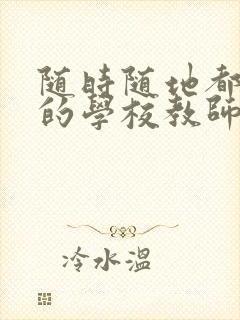 随時随地都
的學校教師
冷水溫